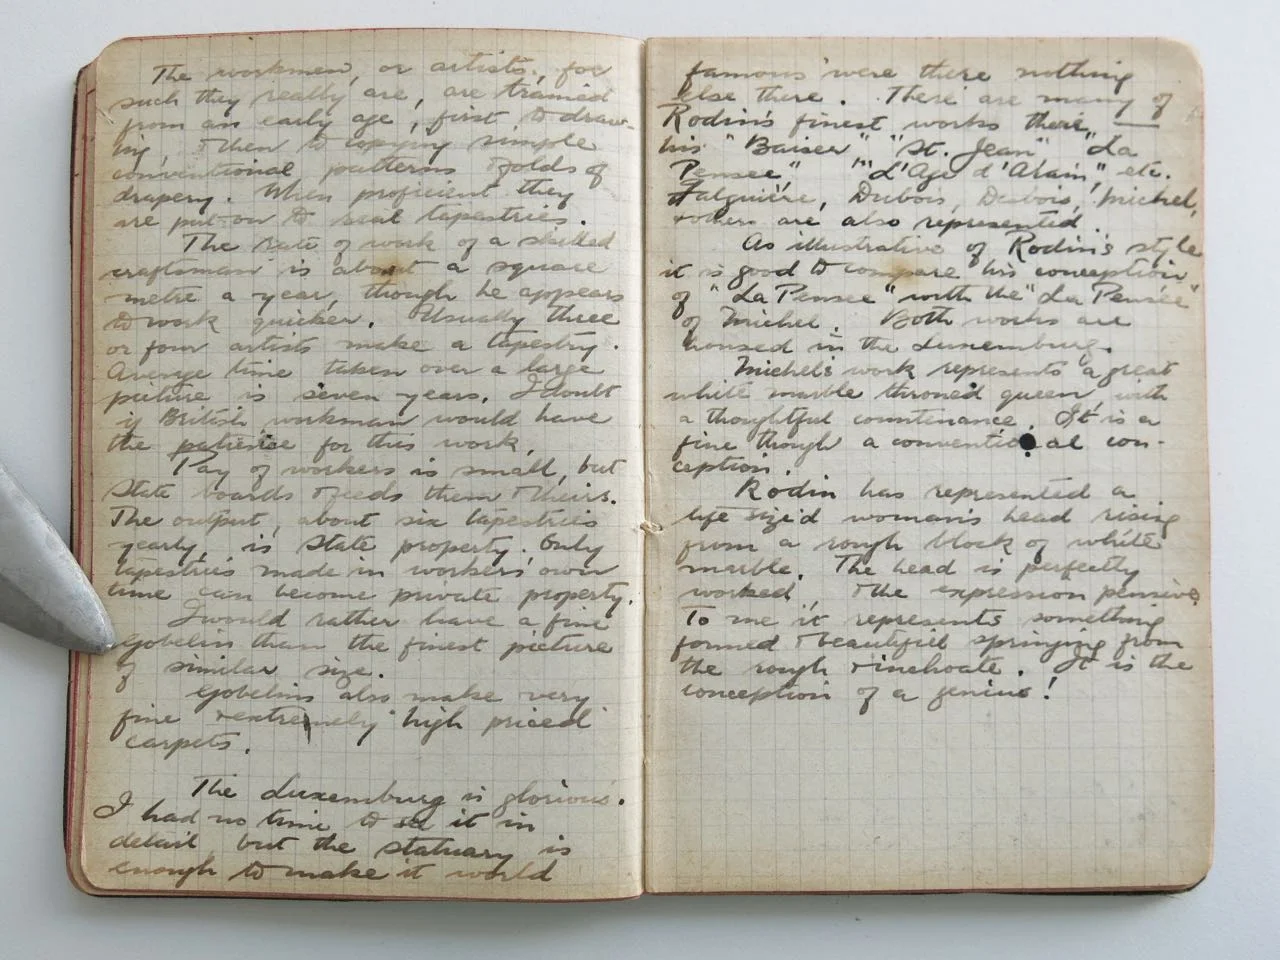 The workmen, or artists, for
such they really are, are trained
from an early age, first to draw-
ing, & then to copying simple
conventional patterns & folds of
drapery. When proficient they
are put on to real tapestries.
The rate of work of a skilled
craftsman is about a square
metre a year, though he appears
to work quicker. Usually three
or four artists make a tapestry.
Average time taken over a large
picture is seven years. I doubt
if British workman would have
the patience for this work.
Pay of workers is small, but
State boards & feeds them & theirs.
The output, about six tapestries
yearly, is State property. Only
tapestries made in workers' own
time can become private property.
I would rather have a fine
Gobelin than the finest picture
of similar size.
Gobelins also make very
fine & extremely high priced
carpets.
The Luxemburg is glorious.
I had no time to see it in
detail but the statuary is
enough to make it world
famous were there nothing
else there. There are many of
Rodin's finest works there, —
his "Baiser" "St. Jean" "La
Pensée" "L'Age d'Airain", etc.
Falguière, Dubois, Desbois, Michel,
& others are also represented.
As illustrative of Rodin's style
it is good to compare his conception
of "La Pensée" with the "La Pensée"
of Michel. Both works are
housed in the Luxemburg.
Michel's work represents a great
white marble throned queen, with
a thoughtful countenance. It is a
fine though a conventional con-
ception.
Rodin has represented a
life sized woman's head rising
from a rough block of white
marble. The head is perfectly
worked, & the expression pensive.
To me it represents something
formed & beautiful springing from
the rough & inchoate. It is the
conception of a genius!